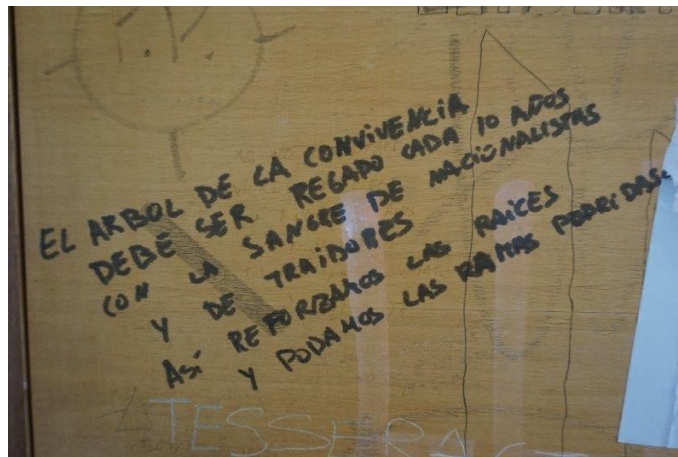 EL ARBOL DE LA CONVIVENCIA
DEBE SER REGADO CADA 10 AÑOS
CON LA SANGRE DE NACIONALISTAS
Y DE TRAIDORES
ASí REFORZAMOS LAS RAíCES
Y PODAMOS LAS RAMAS PODRIDAS.
TESSERACT